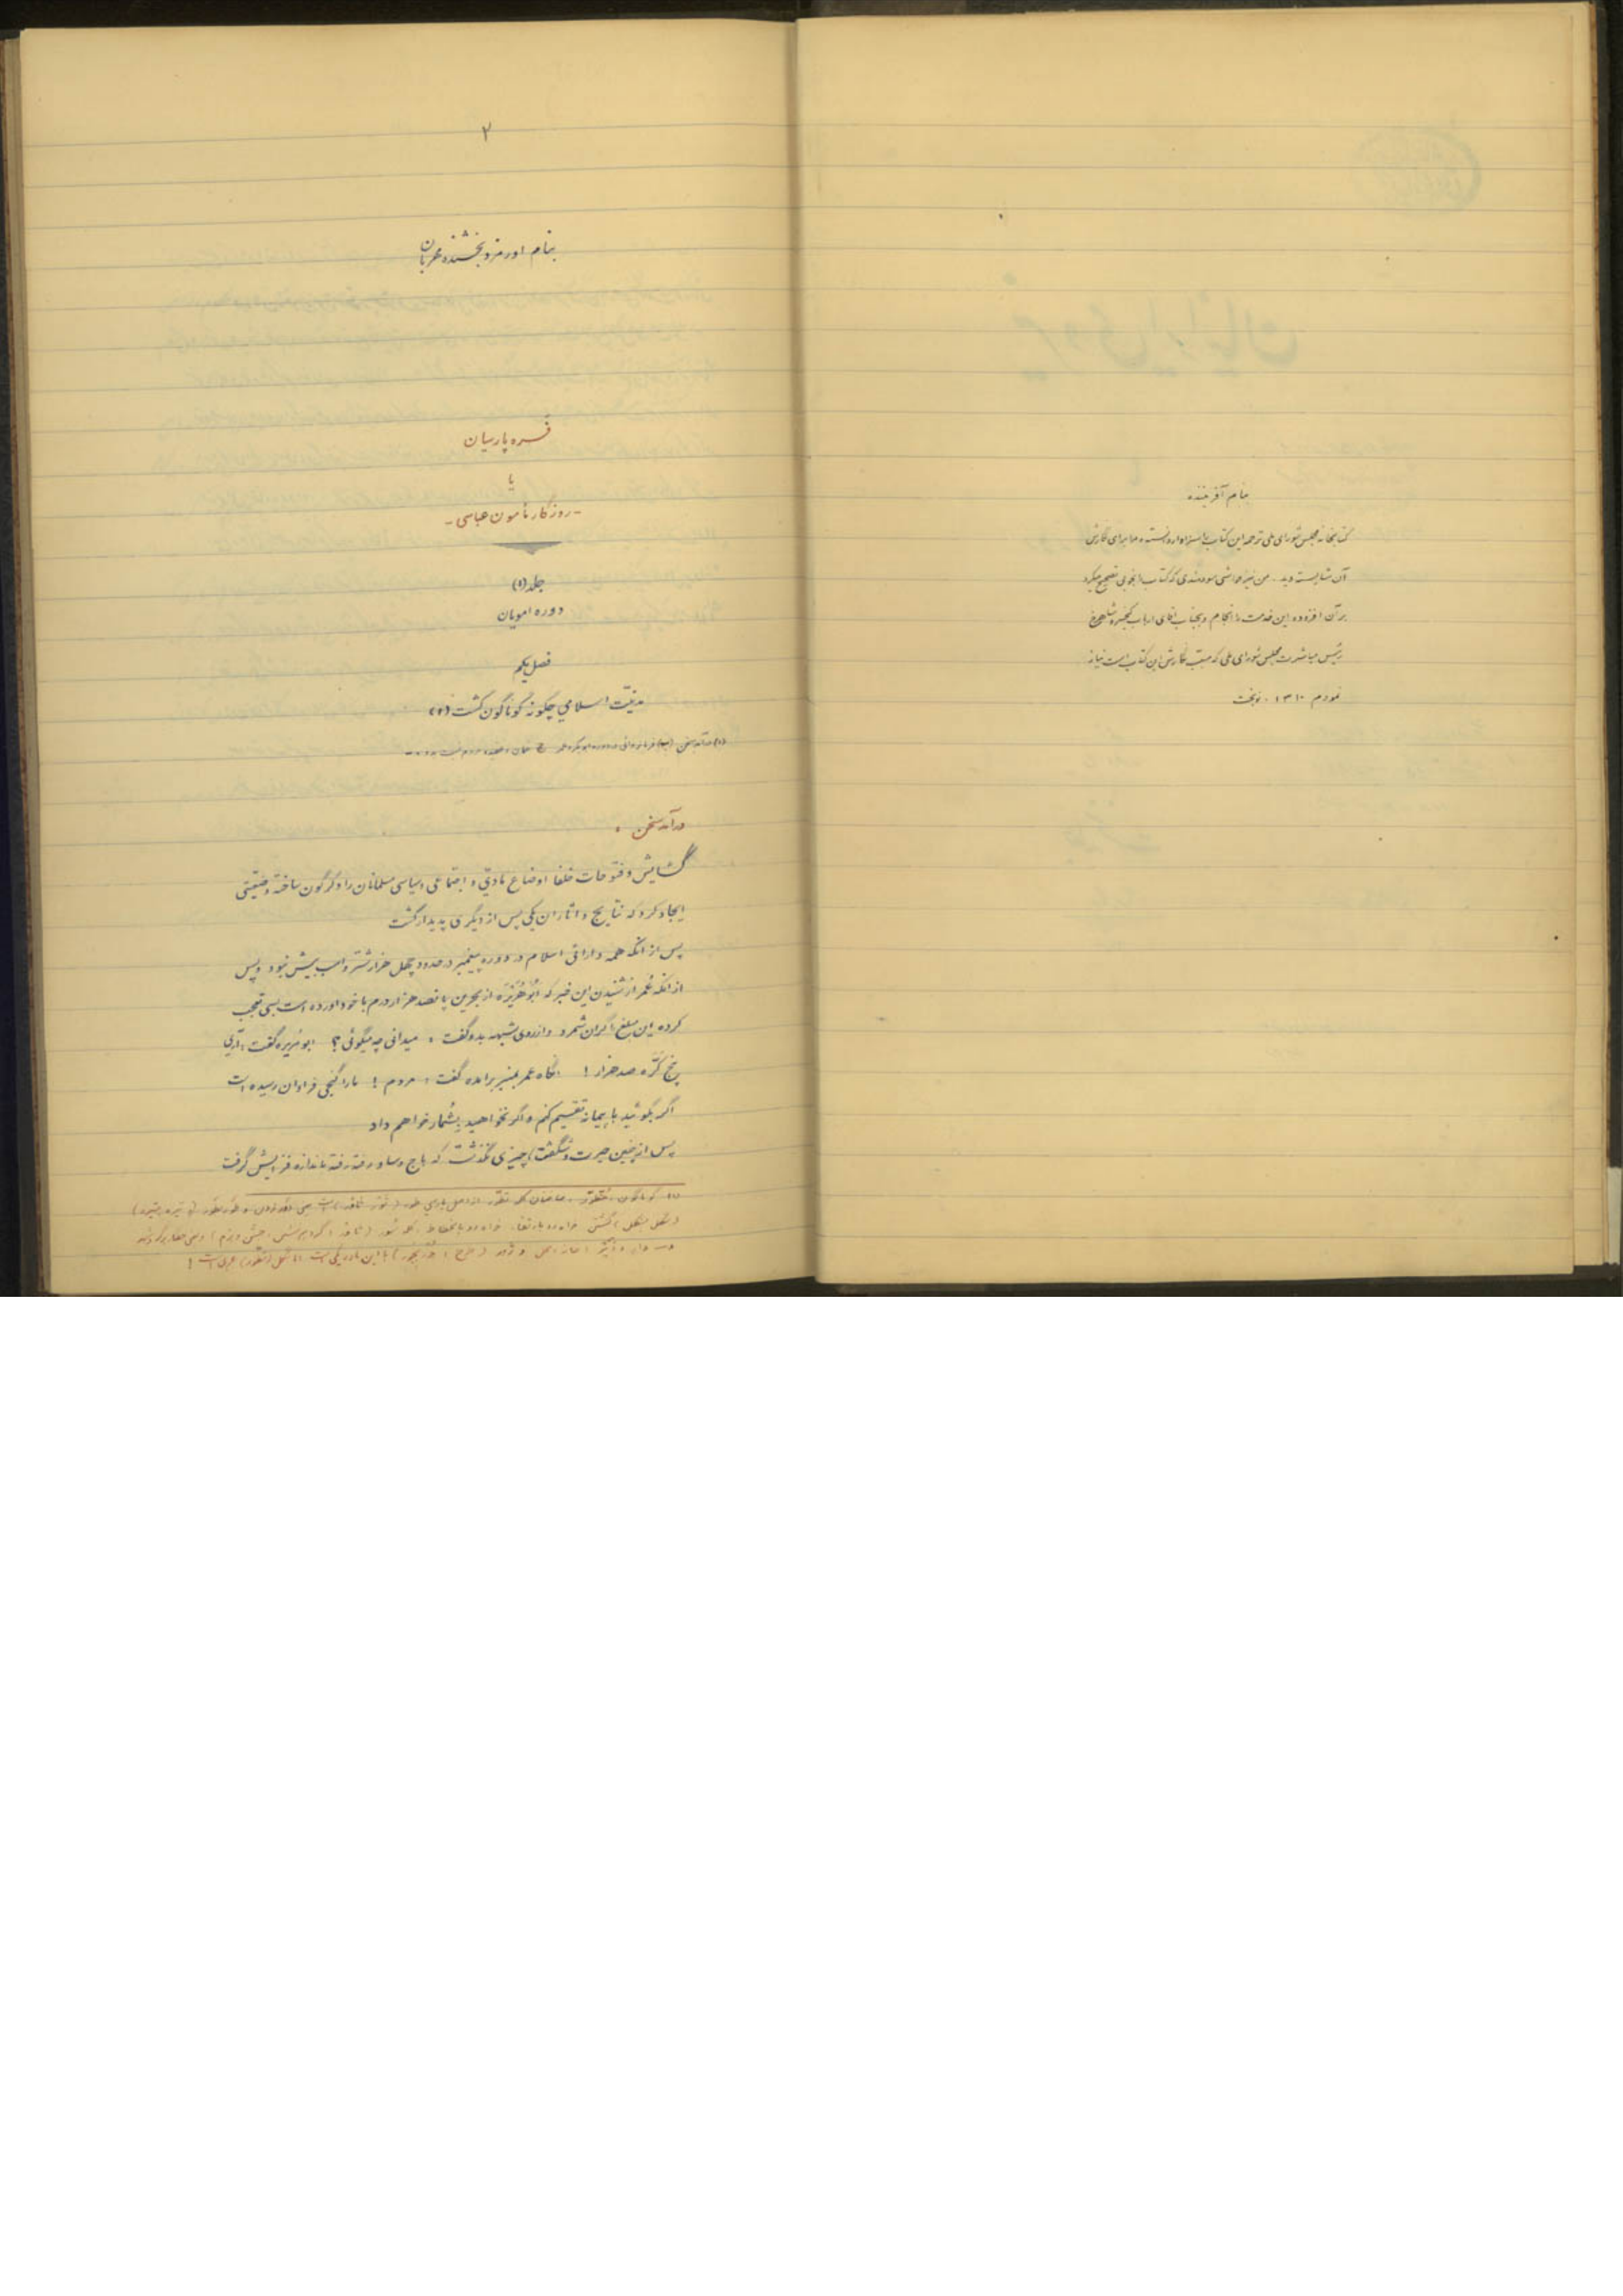 بنام آفریننده
کتابخانه مجلس شورای ملی ترجمه این کتاب را سزاوار دانسته و ما برای نگارش
آن شایسته دید. من نیز حواشی سودمندی که کتاب را بخوبی تصحیح میکرد
بر آن افزوده این خدمت را انجام و بجناب آقای ارباب کیخسرو شاهرخ
رئیس مباشرت مجلس شورای ملی که مسبب نگارش این کتاب است نیاز
نمودم ۱۳۱۰. نوبخت
۲
بنام اورمزد بخشنده مهربان
فسره پارسیان
یا
- روزگار مأمون عباسی -
جلد (۱)
دوره امویان
فصل یکم
مدنیّت اسلامی چگونه گوناگون گشت (۱)
(۱) درآمد سخن (ب) فرمانروائی در دوره ابوبکر و عمر ج
درآمد سخن .
گشایش و فتوحات خلفا اوضاع مادّی و اجتماعی و سیاسی مسلمانان را دگرگون ساخته وضعیتی
ایجاد کرد که نتایج و اثار ان یکی پس از دیگری پدیدار گشت
پس از انکه همه دارائی اسلام در دوره پیغمبر در حدود چهل هزار شتر و اسب بیش نبود و پس
از انکه عُمَر از شنیدن این خبر که اَبُوهُرَیْرَه از بحرین پانصد هزار درم با خود اورده است بسی تعجب
کرده این مبلغ را گران شمرد و از روی شبهه بدو گفت : میدانی چه میگوئی ؟ ابوهریره گفت : آری
پنج کَرَّه صد هزار ! انگاه عمر بمنبر برامده گفت : مردم ! ما را گنجی فراوان رسیده است
اگر بگوئید با پیمانه تقسیم کنم و اگر نخواهید بشُمار خواهم داد
پس از چنین حیرت و شگفت ! چیزی نگذشت که باج و ساو رفته رفته باندازه فزایش گرفت